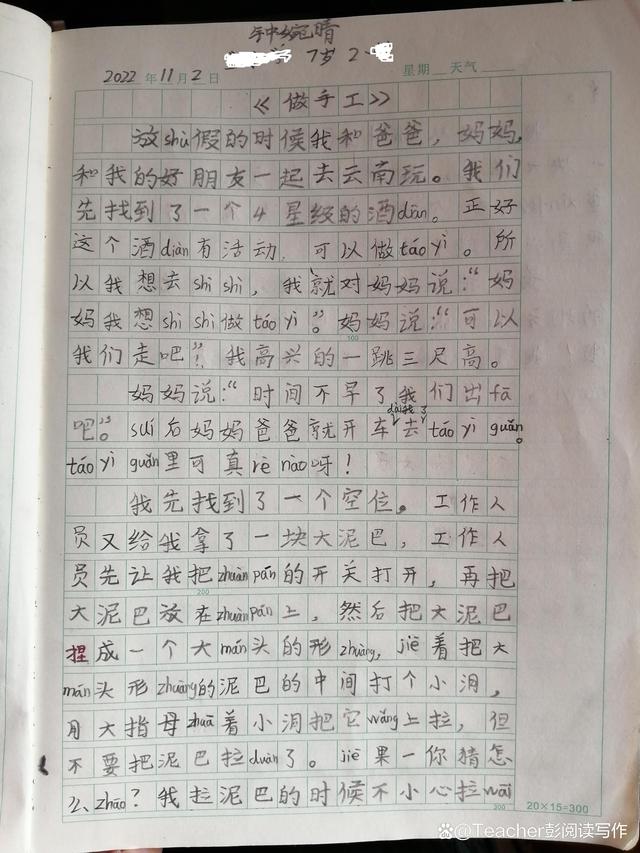 钟婉晴
7岁 2
2022年11月2日 星期 天气
《做手工》
放shǔ假的时候我和爸爸,妈妈,
和我的好朋友一起去云南玩。我们
先找到了一个4星级的酒diàn。正好
这个酒diàn有活动,可以做táo yì。所
以我想去shì shì,我就对妈妈说:“妈
妈我想shì shì做táo yì”。妈妈说:“可以
我们走吧”!我高兴的一跳三尺高。
妈妈说:“时间不早了我们出fā
吧”。suí后妈妈爸爸就开车带我去了táo yì guǎn。
táo yì guǎn里可真rè nào呀!
我先找到了一个空位。工作人
员又给我拿了一块大泥巴,工作人
员先让我把zhuàn pán的开关打开,再把
大泥巴放在zhuàn pán上,然后把大泥巴
捏成一个大mán头的形zhuàng,jiē着把大
mán头形zhuàng的泥巴的中间打个小洞,
用大指母zhuā着小洞把它wǎng上拉,但
不要把泥巴拉duàn了。jié果一你猜怎
么zhāo?我拉泥巴的时候不小心拉wāi
100
200
300
20×15=300
@Teacher彭阅读写作